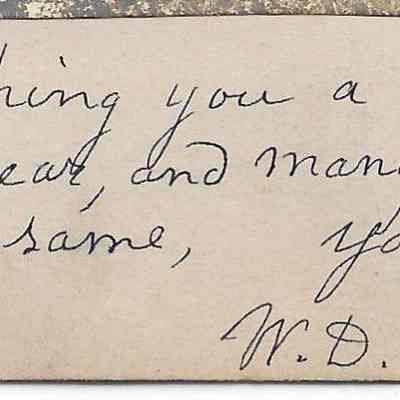 hing you a
ear, and man
same, yo
W. D.